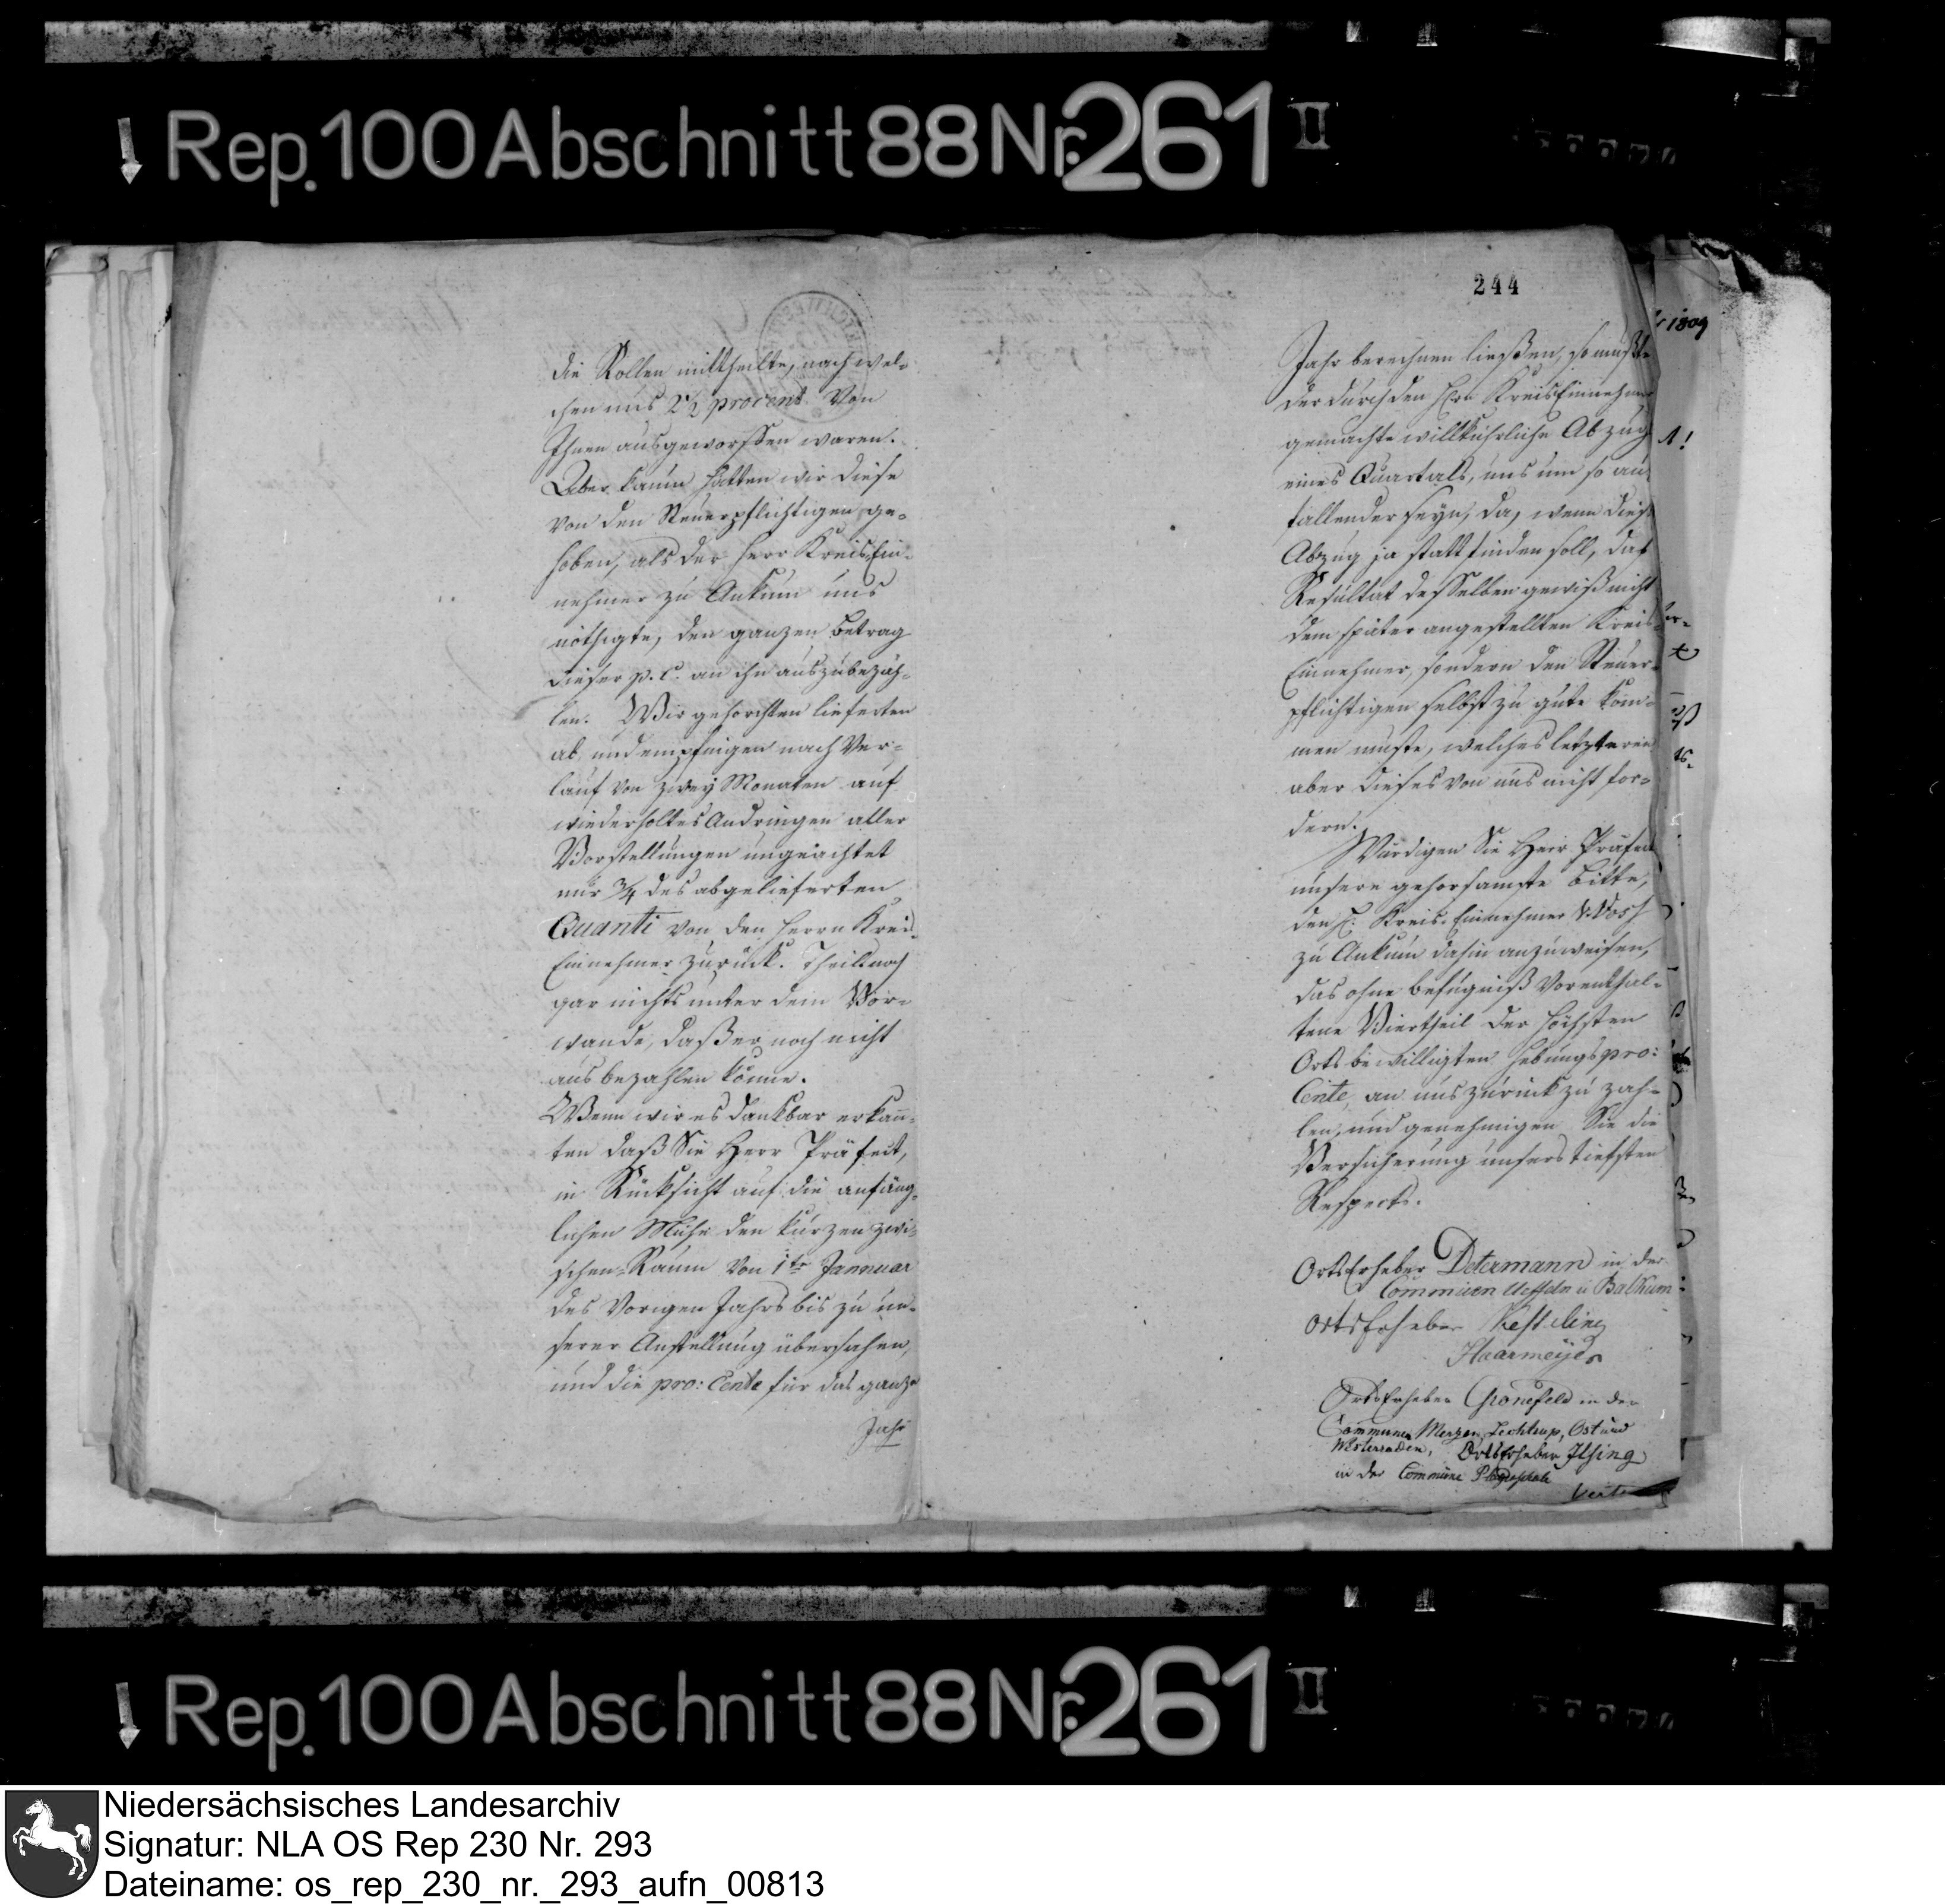 Rep. 100 Abschnitt 88 Nr. 261 II
die Rollen mittheilte, nach wel-
chen uns 2½ procent von
Ihnen ausgeworffen waren.
Aber kaum hatten wir diese
von den Steuerpflichtigen ge-
hoben, als der Herr Kreis Ein-
nehmer zu Ankum uns
nöthigte, den ganzen Betrag
dieser p. C. an ihn auszubezah-
len. Wir gehorchten lieferten
ab, und empfingen nach Ver-
lauf von zwey Monaten auf
wiederholtes Andringen aller
Vorstellungen ungeachtet
nur ¾ des abgelieferten
Quanti von den Herrn Kreis-
Einnehmer zurück. Theils noch
gar nichts unter dem Vor-
wande, daß er noch nicht
aus bezahlen könne.
Wenn wir es dankbar erkañ-
ten daß Sie Herr Präfect,
in Rücksicht auf die anfäng-
lichen Mühe den kurzen zwi-
schen-Raum von 1ten Jannuar
des vorigen Jahrs bis zu un-
serer Anstellung übersahen,
und die pro: Cente für das ganze
Jahr
244
Jahr berechnen ließen, so mußte
der durch den Hrn Kreis Einnehmer
gemachte willkührliche Abzug
eines Quartals, uns um so auf-
fallender seyn, da, wenn dieser
Abzug ja statt finden soll, das
Resultat desselben gewiß nicht
dem später angestellten Kreis-
Einnehmer, sondern den Steuer-
pflichtigen selbst zu gute kom-
men muste, welches letzteren
aber dieses von uns nicht for-
dern.
Würdigen Sie Herr Präfect
unsere gehorsamste Bitte,
den H. Kreis-Einnehmer v. Voss
zu Ankum dahin anzuweisen,
das ohne befugniß vorenthal-
tene Viertheil der höchsten
Orts bewilligten Hebungs pro:
Cente, an uns zurück zu zah-
len, und genehmigen Sie die
Versicherung unsers tiefsten
Respects.
Orts Erheber Determann in der
Commüen Ueffeln u Balkum
Orts Erheber Kesteling
Haarmeÿer
Orts Erheber Gronefeld in der
Commune Merzen, Lechtrup, Ost und
Westerroden, Orts Erheber Ilsing
in der Commüne Plaggeschale
Verte
1809
Rep. 100 Abschnitt 88 Nr. 261 II
Niedersächsisches Landesarchiv
Signatur: NLA OS Rep 230 Nr. 293
Dateiname: os_rep_230_nr._293_aufn_00813